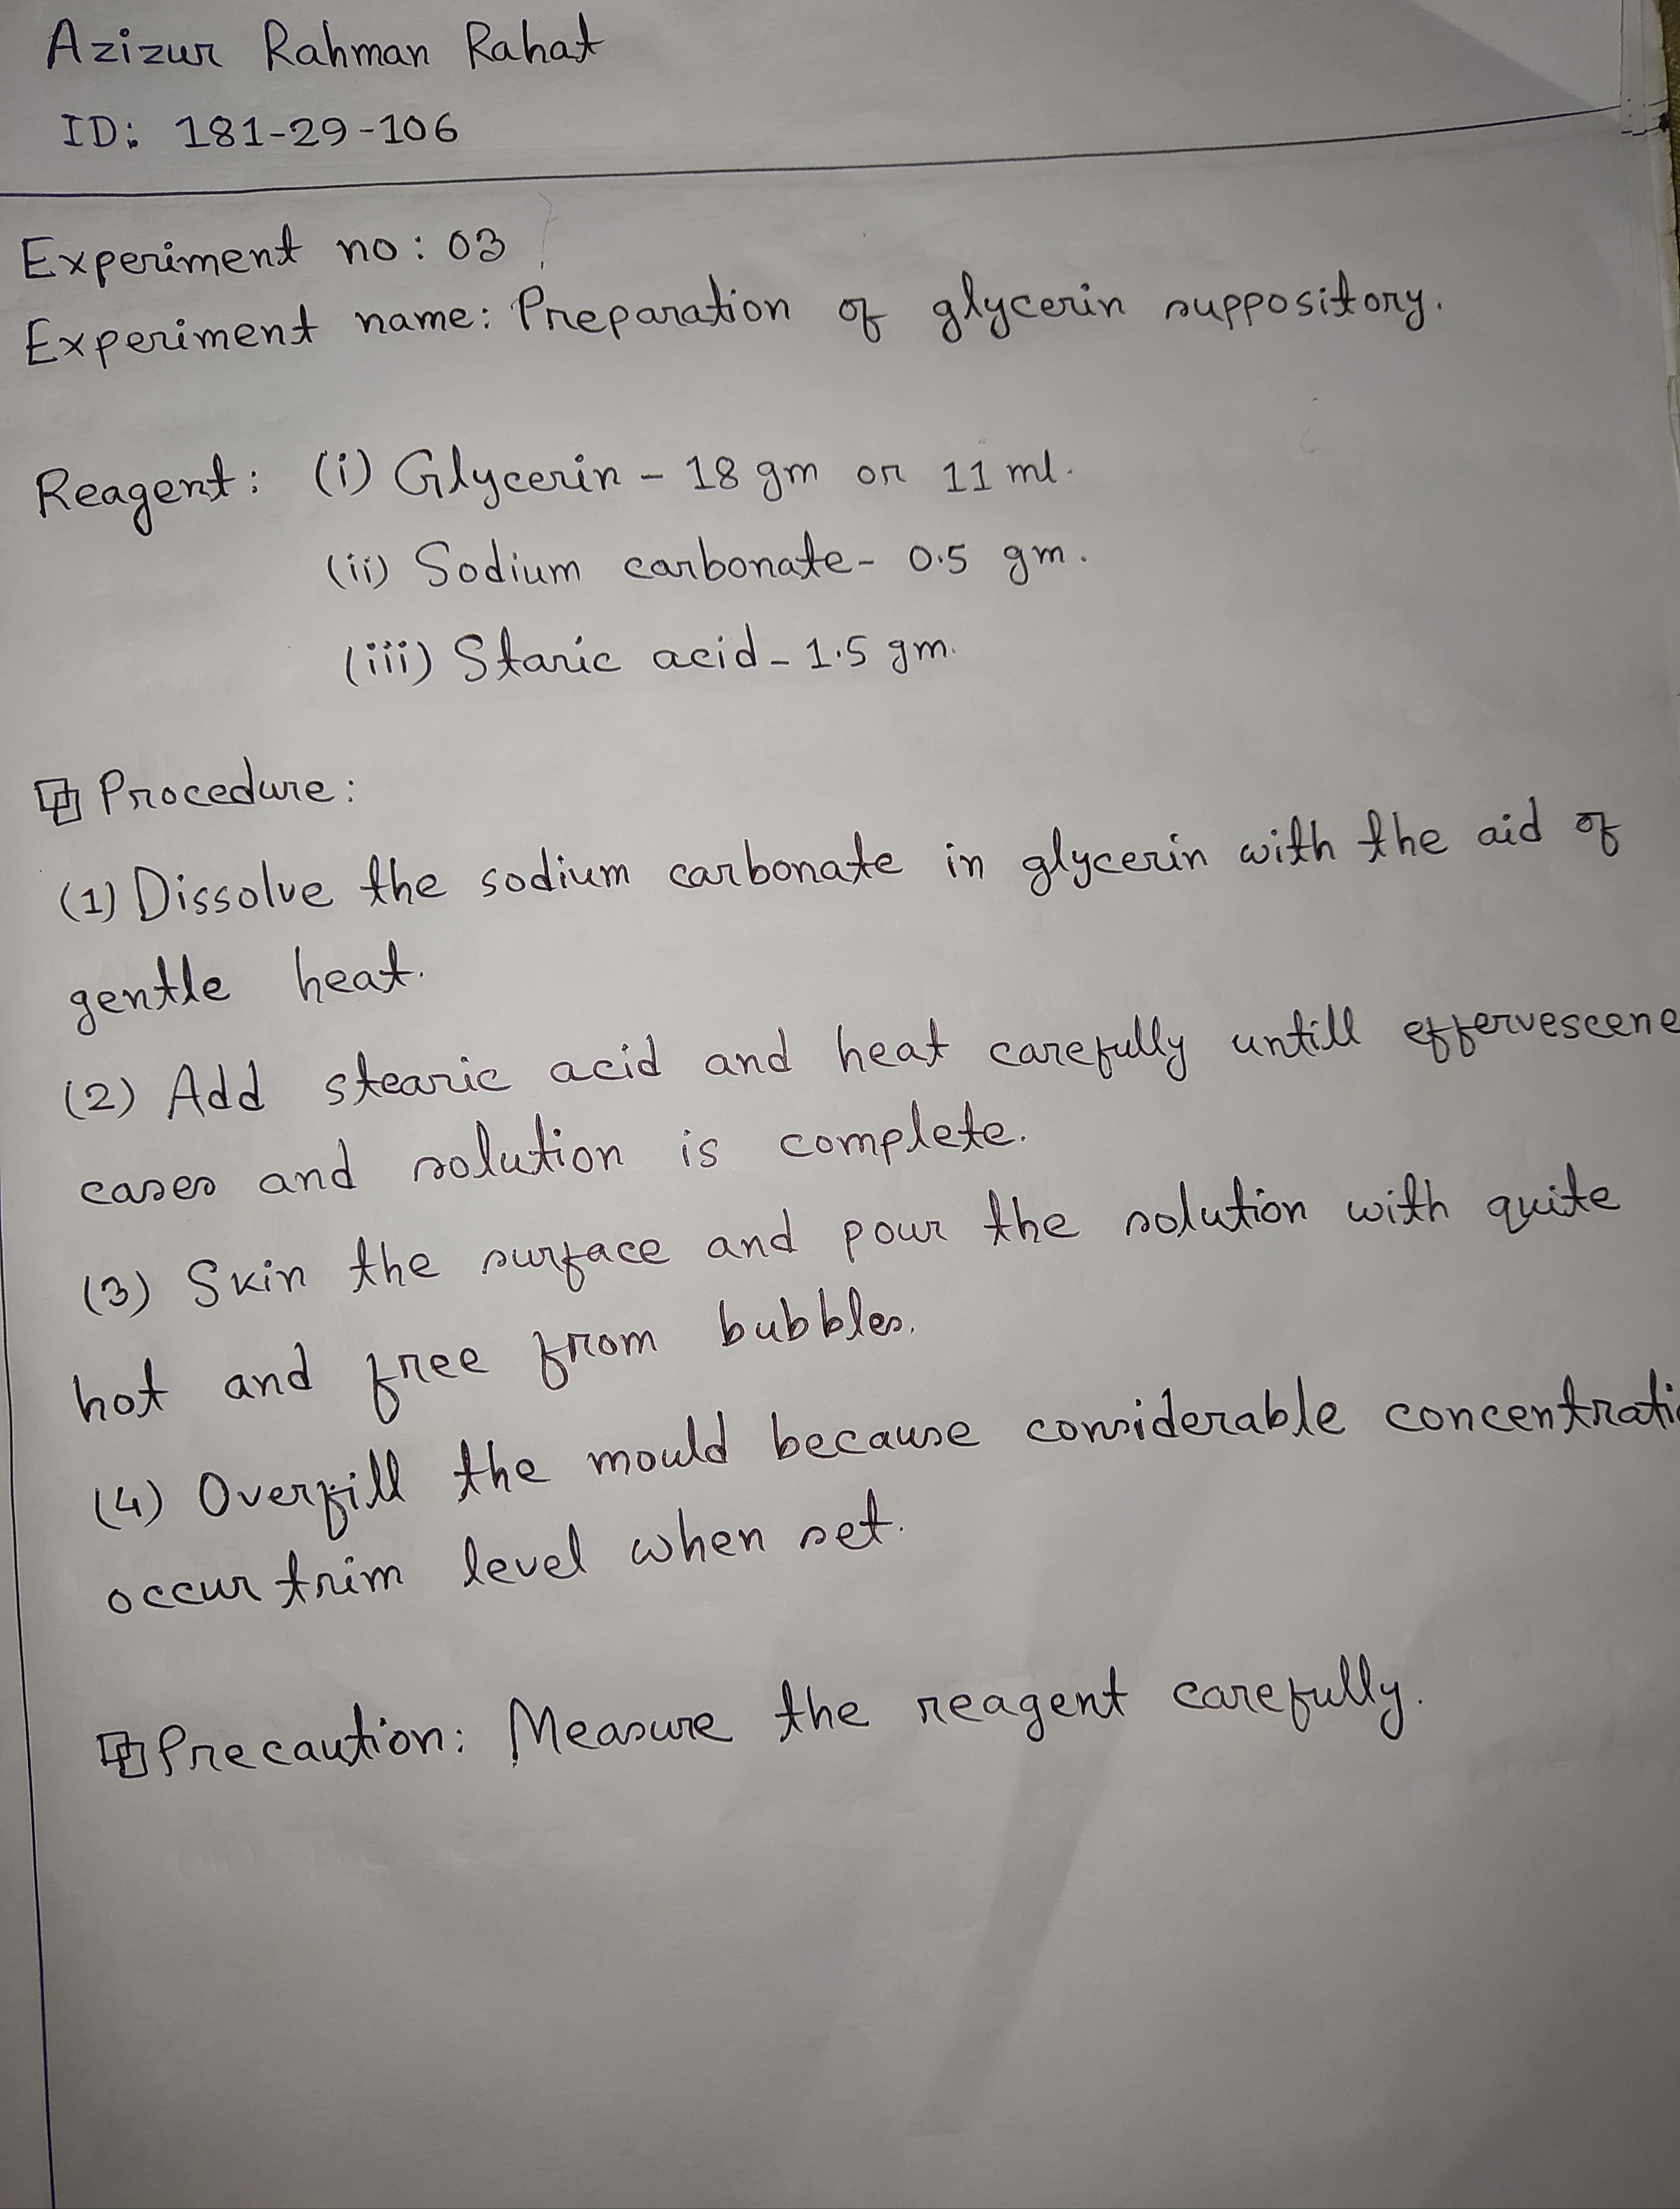 Azizur Rahman Rahat
ID: 181-29-106
Experiment no: 03
Experiment name: Preparation of glycerin suppository.
Reagent: (i) Glycerin - 18 gm or 11 ml.
(ii) Sodium carbonate - 0.5 gm.
(iii) Staric acid - 1.5 gm.
Procedure:
(1) Dissolve the sodium carbonate in glycerin with the aid of
gentle heat.
(2) Add stearic acid and heat carefully untill effervescene
cases and solution is complete.
(3) Skin the surface and pour the solution with quite
hot and free from bubbles.
(4) Overfill the mould because considerable concentrati
occur trim level when set.
Precaution: Measure the reagent carefully.